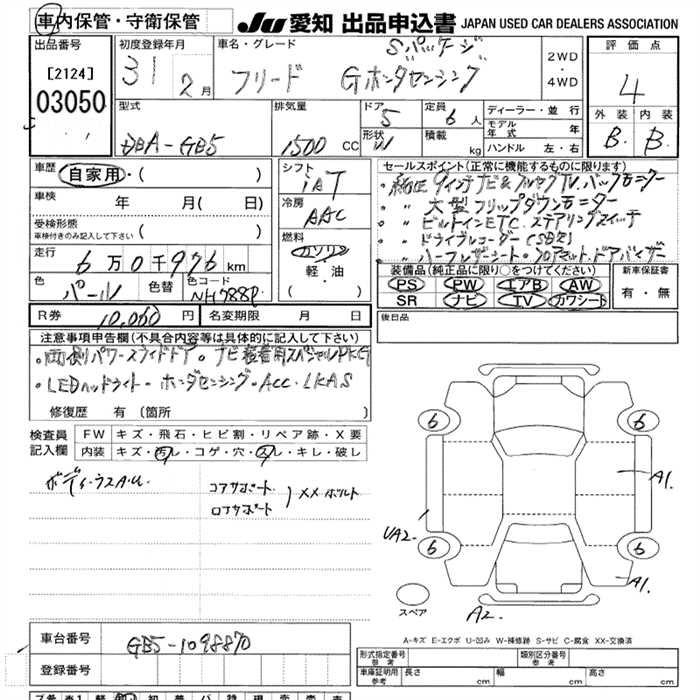 車内保管・守衛保管 JU 愛知 出品申込書 JAPAN USED CAR DEALERS ASSOCIATION
出品番号 初度登録年月 車名・グレード 評価点
[2124] 31 2月 フリード Gホンダセンシング Sパッケージ 2WD・4WD 4
03050 型式 排気量 ドア 5 定員 6人 ディーラー・並行 外装 内装
DBA-GB5 1500CC 形状 W 積載 kg モデル年式 年 B. B.
ハンドル 左・右
車歴 自家用・( ) シフト セールスポイント(正常に機能するものに限ります)
車検 年 月( 日) iAT ・純正9インチナビ&フルセグTV.バックカニター
受検形態 冷房 AAC ・〃 大型フリップダウンカニター
車検付きのみ記入して下さい ( ) ・〃 ビルトインETC.ステアリングスイッチ
走行 6万0千976km 燃料 ガソリン ・〃 ドライブレコーダー
軽・油 ・〃 ハーフレザーシート・フロアマット.ドアバイザー
( )
色 パール 色替 色コード NH788P. 装備品(純正品に限り○をつけてください) 新車保証書
PS PW エアB AW 有・無
SR ナビ TV カワシート
R券 10,060円 名変期限 月 日 後日品
注意事項申告欄(不具合内容等は具体的に記入して下さい)
・両側パワースライドドア・ナビ装着用スペシャルPKG
・LEDヘッドライト・ホンダセンシング・ACC・LKAS
修復歴 有(箇所 )
検査員 FW キズ・飛石・ヒビ割・リペア跡・X要
記入欄 内装 キズ・汚れ・コゲ・穴・スレ・キレ・破レ
ボディーラスA.U. コアサポート
ロアサポート )XXボルト
6 6
A1.
UA2.
6 6
A1.
スペア A2.
A-キズ E-エクボ U-凹み W-補修跡 S-サビ C-腐食 XX-交換済
車台番号 GB5-1098870 形式指定番号 参考 類別区分番号 参考
登録番号 車庫証明用 参考 長さ cm 幅 cm 高さ cm